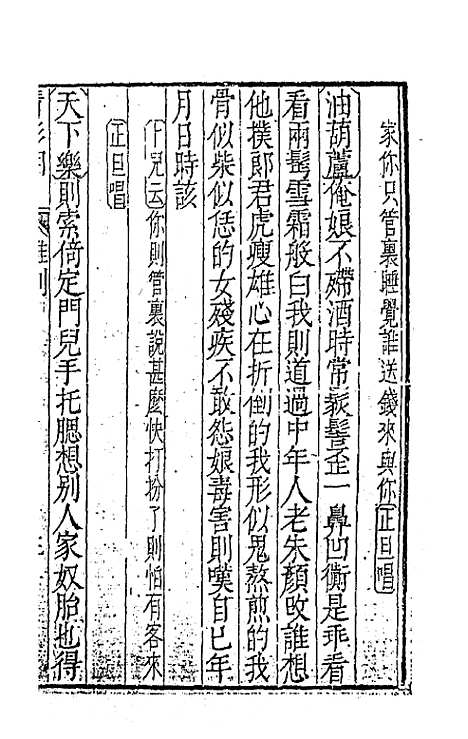 家你只管裏睡覺誰送錢來與你正旦唱
油葫蘆俺娘不殢酒時常髮髻歪一鼻凹衠是乖看
看兩鬂雪霜般白我則道過中年人老朱顔攺誰想
他撲郎君虎瘦雄心在折倒的我形似鬼熬煎的我
骨似柴似恁的女殘疾不敢怨娘毒害則嘆自已年
月日時該
卜兒云你則管裏說甚麽快打扮了則怕有客來
正旦唱
天下樂則索倚定門兒手托腮想别人家奴胎也得